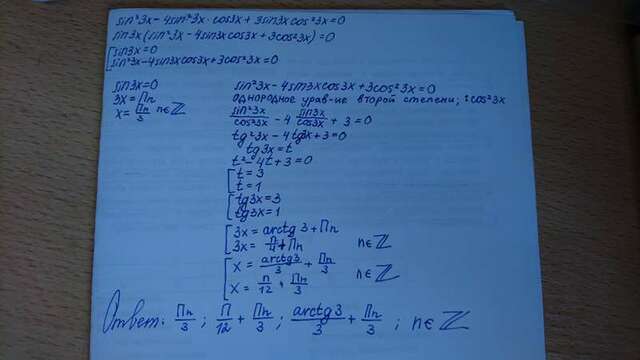 sin³3x - 4sin²3x · cos3x + 3sin3x cos²3x = 0
sin3x(sin²3x - 4sin3x cos3x + 3cos²3x) = 0
[sin3x = 0
sin²3x - 4sin3x cos3x + 3cos²3x = 0
sin3x = 0
3x = Πn
x = Πn/3 n∈ℤ
sin²3x - 4sin3x cos3x + 3cos²3x = 0
однородное урав-ие второй степени, : cos²3x
sin²3x/cos²3x - 4 sin3x/cos3x + 3 = 0
tg²3x - 4tg3x + 3 = 0
tg3x = t
t² - 4t + 3 = 0
[t = 3
t = 1
[tg3x = 3
tg3x = 1
[3x = arctg3 + Πn
3x = Π/4 + Πn n∈ℤ
[x = arctg3/3 + Πn/3
x = Π/12 + Πn/3 n∈ℤ
Ответ: Πn/3 ; Π/12 + Πn/3 ; arctg3/3 + Πn/3 ; n∈ℤ